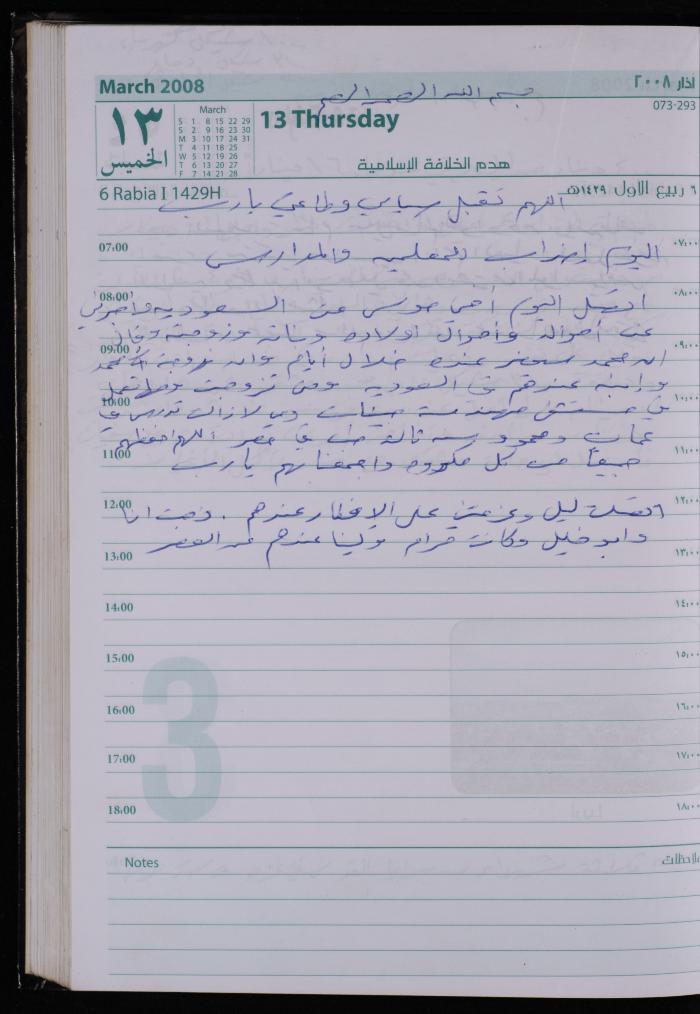 March 2008
آذار ٢٠٠٨
بسم الله الرحمن الرحيم
073-293
١٣
الخميس
March
S 1 8 15 22 29
S 2 9 16 23 30
M 3 10 17 24 31
T 4 11 18 25
W 5 12 19 26
T 6 13 20 27
F 7 14 21 28
13 Thursday
هدم الخلافة الإسلامية
6 Rabia I 1429H
٦ ربيع الأول ١٤٢٩هـ
اللهم تقبل صيامي وطاعتي يارب
07:00
٠٧:٠٠
اليوم إضراب للمعلمين والمدارس
08:00
٠٨:٠٠
اتصل اليوم أخي موسى من السعودية
عن أحواله وأحوال أولاده وبناته وزوجته
09:00
٠٩:٠٠
محمد سيحضر عنده خلال أيام
وابنه عندهم في السعودية ومن تزوجت
10:00
١٠:٠٠
في مستشفى مهندسة لازالت تدرس في
عمان ومحمود سنة ثالثة طب في مصر اللهم احفظهم
11:00
١١:٠٠
جميعاً من كل مكروه واجمعنا بهم يارب
12:00
١٢:٠٠
اتصلت ليلى وعزمتني على الإفطار عندهم . ذهبت انا
وابو خليل وكانت مرام ولينا عندهم من العصر
13:00
١٣:٠٠
14:00
١٤:٠٠
15:00
١٥:٠٠
3
16:00
١٦:٠٠
17:00
١٧:٠٠
18:00
١٨:٠٠
Notes
ملاحظات